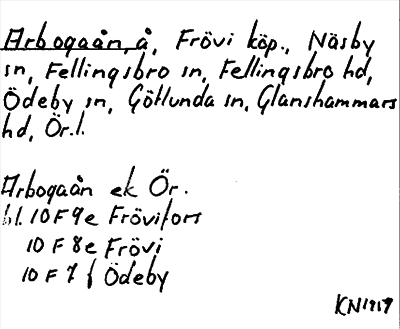 Arbogaån, å, Frövi köp., Näsby
sn, Fellingsbro sn, Fellingsbro hd,
Ödeby sn, Götlunda sn, Glanshammars
hd, Ör.l.
Arbogaån ek Ör.
bl. 10 F 9 e Frövifors
10 F 8 e Frövi
10 F 7 f Ödeby